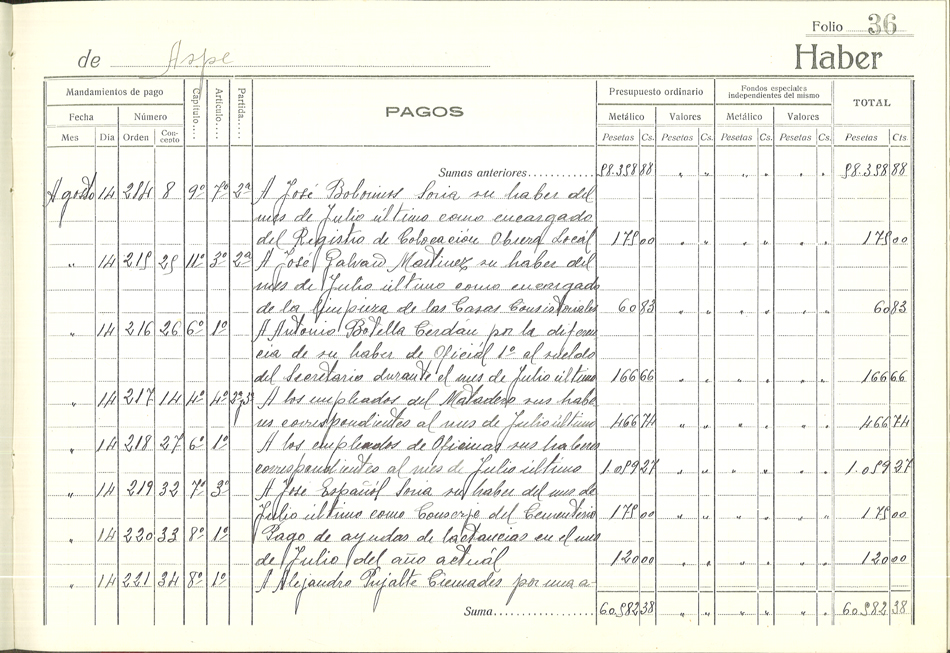 Folio 36
de Aspe Haber
Mandamientos de pago Capítulo.... Artículo.... Partida.... PAGOS Presupuesto ordinario Fondos especiales independientes del mismo TOTAL
Fecha Número Metálico Valores Metálico Valores
Mes Día Orden Concepto Pesetas Cs. Pesetas Cs. Pesetas Cs. Pesetas Cs. Pesetas Cts
Sumas anteriores............ 58.358 88 " " " " " " 58.358 88
Agosto 14 214 8 9º 7º 2ª A José Soria su haber del
mes de Julio último como encargado
del Registro de Colocación Obrera Local 175 00 " " " " " " 175 00
" 14 215 25 11º 3º 2ª A José Galvañ Martinez su haber del
mes de Julio último como encargado
de la limpieza de las Casas Consistoriales 60 83 " " " " " " 60 83
" 14 216 26 6º 1º A Antonio Botella Cerdán por la diferen
cia de su haber de Oficial 1º al sueldo
del Secretario durante el mes de Julio último 166 66 " " " " " " 166 66
" 14 217 14 4º 4º 2ª y 3ª A los empleados del Matadero sus habe
res correspondientes al mes de Julio último 466 74 " " " " " " 466 74
" 14 218 27 6º 1º A los empleados de Oficinas sus haberes
correspondientes al mes de Julio último 1.059 27 " " " " " " 1.059 27
" 14 219 32 7º 3º A José Español Soria su haber del mes de
Julio último como Conserje del Cementerio 175 00 " " " " " " 175 00
" 14 220 33 8º 1º Pago de ayudas de lactancias en el mes
de Julio del año actuál 120 00 " " " " " " 120 00
" 14 221 34 8º 1º A Alejandro Pujalte por una a-
Suma...................... 60.582 38 " " " " " " 60.582 38